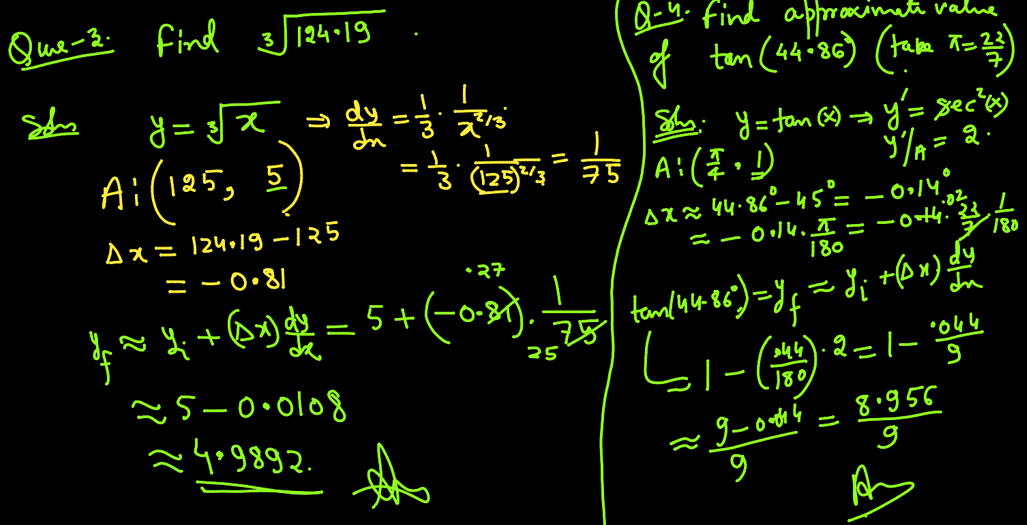 Que-3. Find ∛124.19 .
Soln y = ∛x ⇒ dy/dx = 1/3 · 1/x^2/3 .
= 1/3 · 1/(125)^2/3 = 1/75
A : (125, 5)
Δx = 124.19 - 125
= - 0.81
.27
y_f ≈ y_i + (Δx) dy/dx = 5 + (-0.81) . 1/75
25
≈ 5 - 0.0108
≈ 4.9892.
Ans
Q-4. Find approximate value
of tan(44.86°) (take π = 22/7)
Soln: y = tan(x) ⇒ y' = sec²(x)
A : (π/4 , 1) y'/A = 2.
Δx ≈ 44.86° - 45° = - 0.14°
.02
≈ - 0.14 . π/180 = - 0.14 . 22/7 . 1/180
tan(44.86°) = y_f ≈ y_i + (Δx) dy/dx
= 1 - (.44/180) . 2 = 1 - .044/9
≈ 9 - 0.044/9 = 8.956/9
Ans